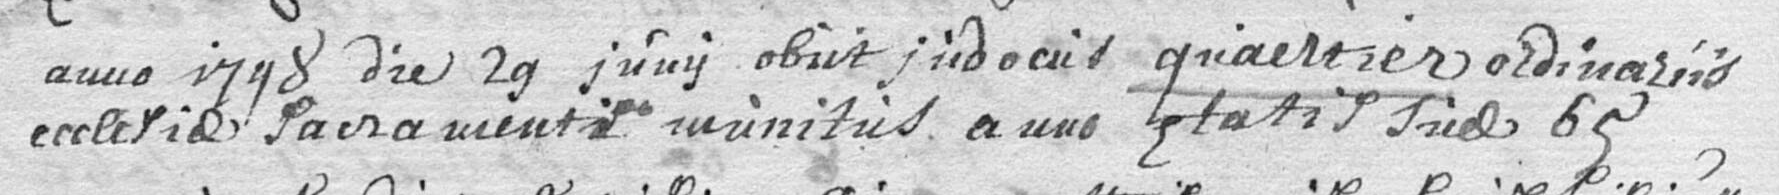 anno 1748 die 29 junij obiit judocus quaertier ordinariis
ecclesiæ Sacramentis munitus anno ętatis suæ 65